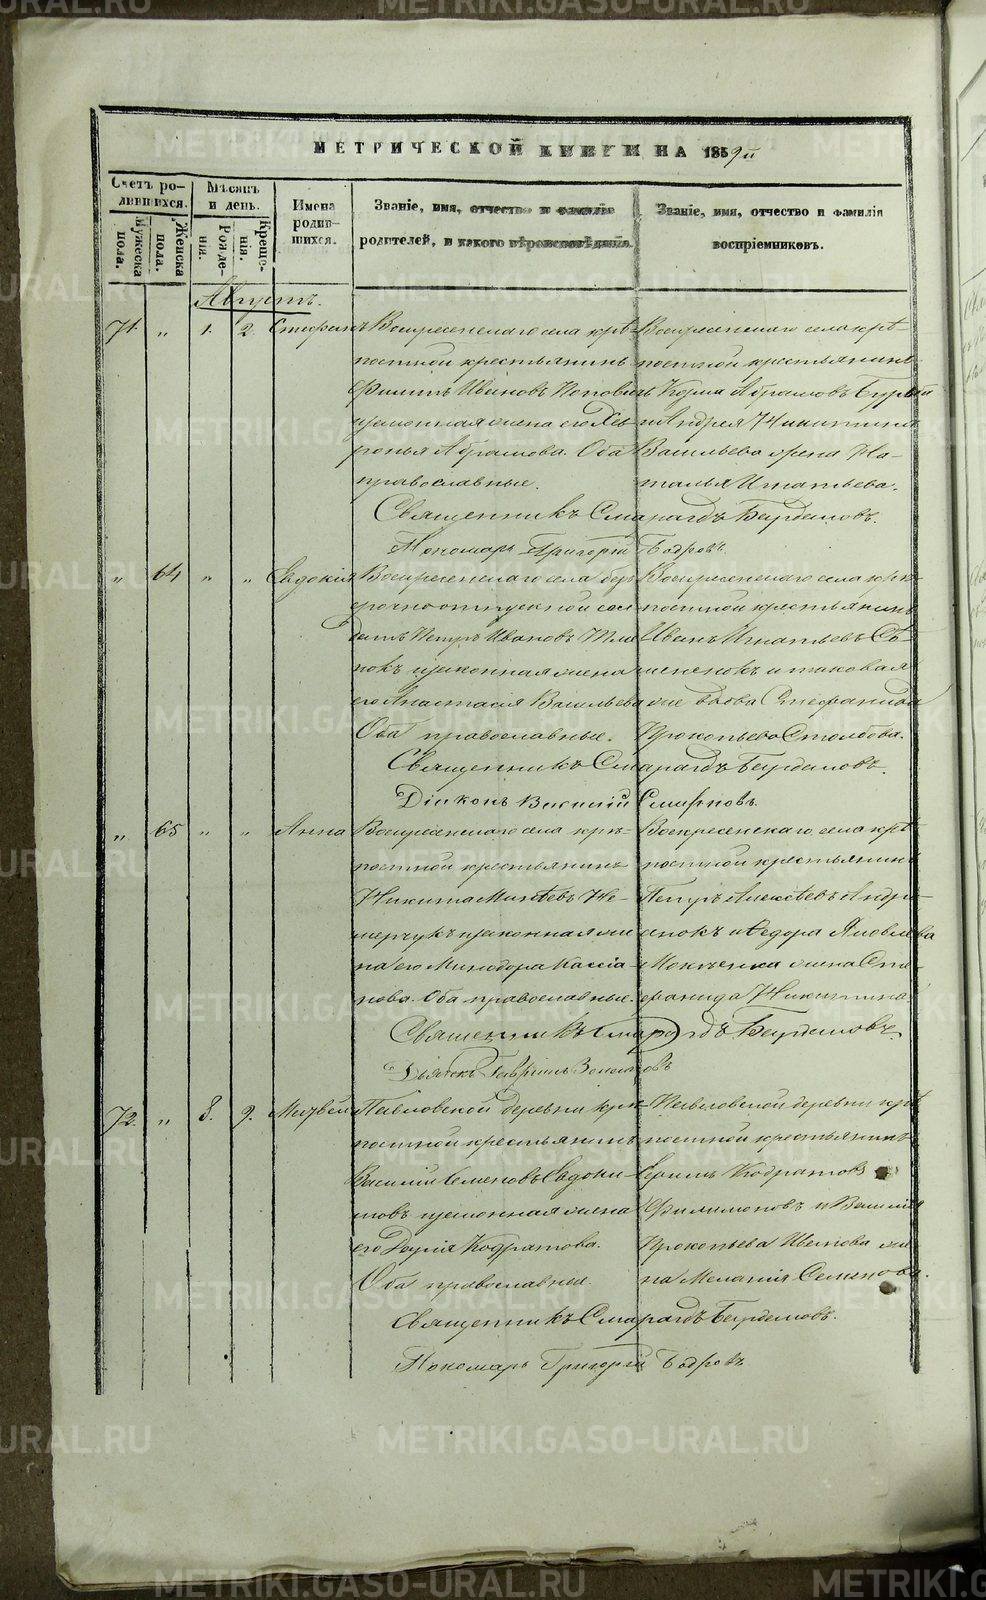 МЕТРИЧЕСКОЙ КНИГИ НА 1859й
Счетъ родившихся.
Мужеска пола.
Женска пола.
Мѣсяцъ и день.
Рожденія.
Крещенія.
Имена родившихся.
Званіе, имя, отчество и фамилія родителей, и какого вѣроисповѣданія.
Званіе, имя, отчество и фамилія воспріемниковъ.
Августъ.
71. „ 1. 2. Стефанъ
Воскресенскаго села крѣ-
постной крестьянинъ
Филипъ Ивановъ Поповичь
и законная жена его Хев-
ронья Абрамова. Оба
православные.
Воскресенскаго села крѣ-
постной крестьянинъ
Козма Абрамовъ Бурый
и Андрея Никитина
Васильева жена На-
талья Игнатьева.
Священникъ Смарагдъ Бурдаковъ.
Пономарь Григорій Бодровъ.
„ 64 „ „ Евдокія
Воскресенскаго села без-
срочноотпускной сол-
датъ Петръ Ивановъ
и законная жена
его Анастасія Васильева
Оба православные.
Воскресенскаго села крѣ-
постной крестьянинъ
Иванъ Игнатьевъ
и таковая
Прокопьева Столбова.
Священникъ Смарагдъ Бурдаковъ.
Діаконъ Василій Смирновъ.
„ 65 „ „ Анна
Воскресенскаго села крѣ-
постной крестьянинъ
Никита Михѣевъ Не-
и законная же-
на его Минодора Кассіа-
нова. Оба православные.
Воскресенскаго села крѣ-
постной крестьянинъ
Петръ Алексѣевъ Андрі-
енокъ и Ѳедора Яковлева
жена Сте-
фанида Никитина.
Священникъ Смарагдъ Бурдаковъ.
Дьячекъ Гавріилъ
72. „ 8. 9. Матвей
Павловской деревни крѣ-
постной крестьянинъ
Василій Семеновъ Евдоки-
мовъ и законная жена
его Дарія Кодратова.
Оба православныя.
Павловской деревни крѣ-
постной крестьянинъ
Кодратовъ
Филимоновъ и Василія
Прокопьева Иванова же-
на Меланія Семенова.
Священникъ Смарагдъ Бурдаковъ.
Пономарь Григорій Бодровъ
METRIKI.GASO-URAL.RU